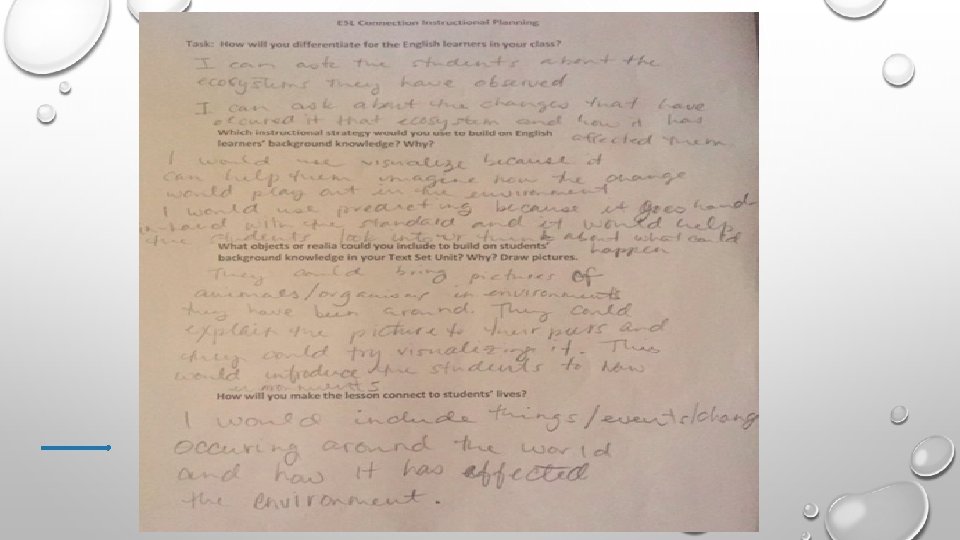 ESL Connection Instructional Planning
Task: How will you differentiate for the English learners in your class?
I can ask the students about the
ecosystems they have observed
I can ask about the changes that have
occured it that ecosystem and how it has
affected them
Which instructional strategy would you use to build on English
learners' background knowledge? Why?
I would use visualize because it
can help them imagine how the change
would play out in the environment
I would use predicting because it goes hand-
in-hand with the standard and it would help
the students look into or think about what could
happen
What objects or realia could you include to build on students'
background knowledge in your Text Set Unit? Why? Draw pictures.
They could bring pictures of
animals/organisms in environments
they have been around. They could
explain the picture to their peers and
they could try visualizing it. This
would introduce the students to how
How will you make the lesson connect to students' lives?
I would include things/events/chang
occuring around the world
and how it has affected
the environment.